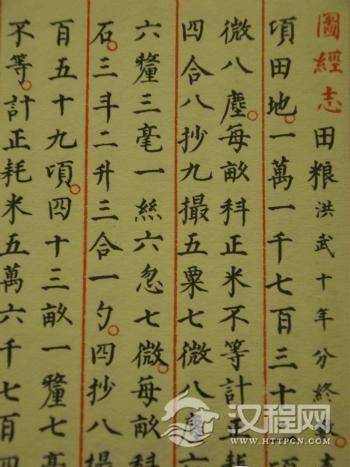 圖經志田粮洪武十年分終
項田地一萬一千七百三十
微八塵每畝科正米不等計正
四合八抄九撮五粟七微八塵六
六釐三毫一絲六忽七微每畝
石三斗二升三合一勺四抄八
百五十九項四十三畝一釐七毫
不等計正耗米五萬六千七百四
汉程网
WWW.HTTPCN.COM